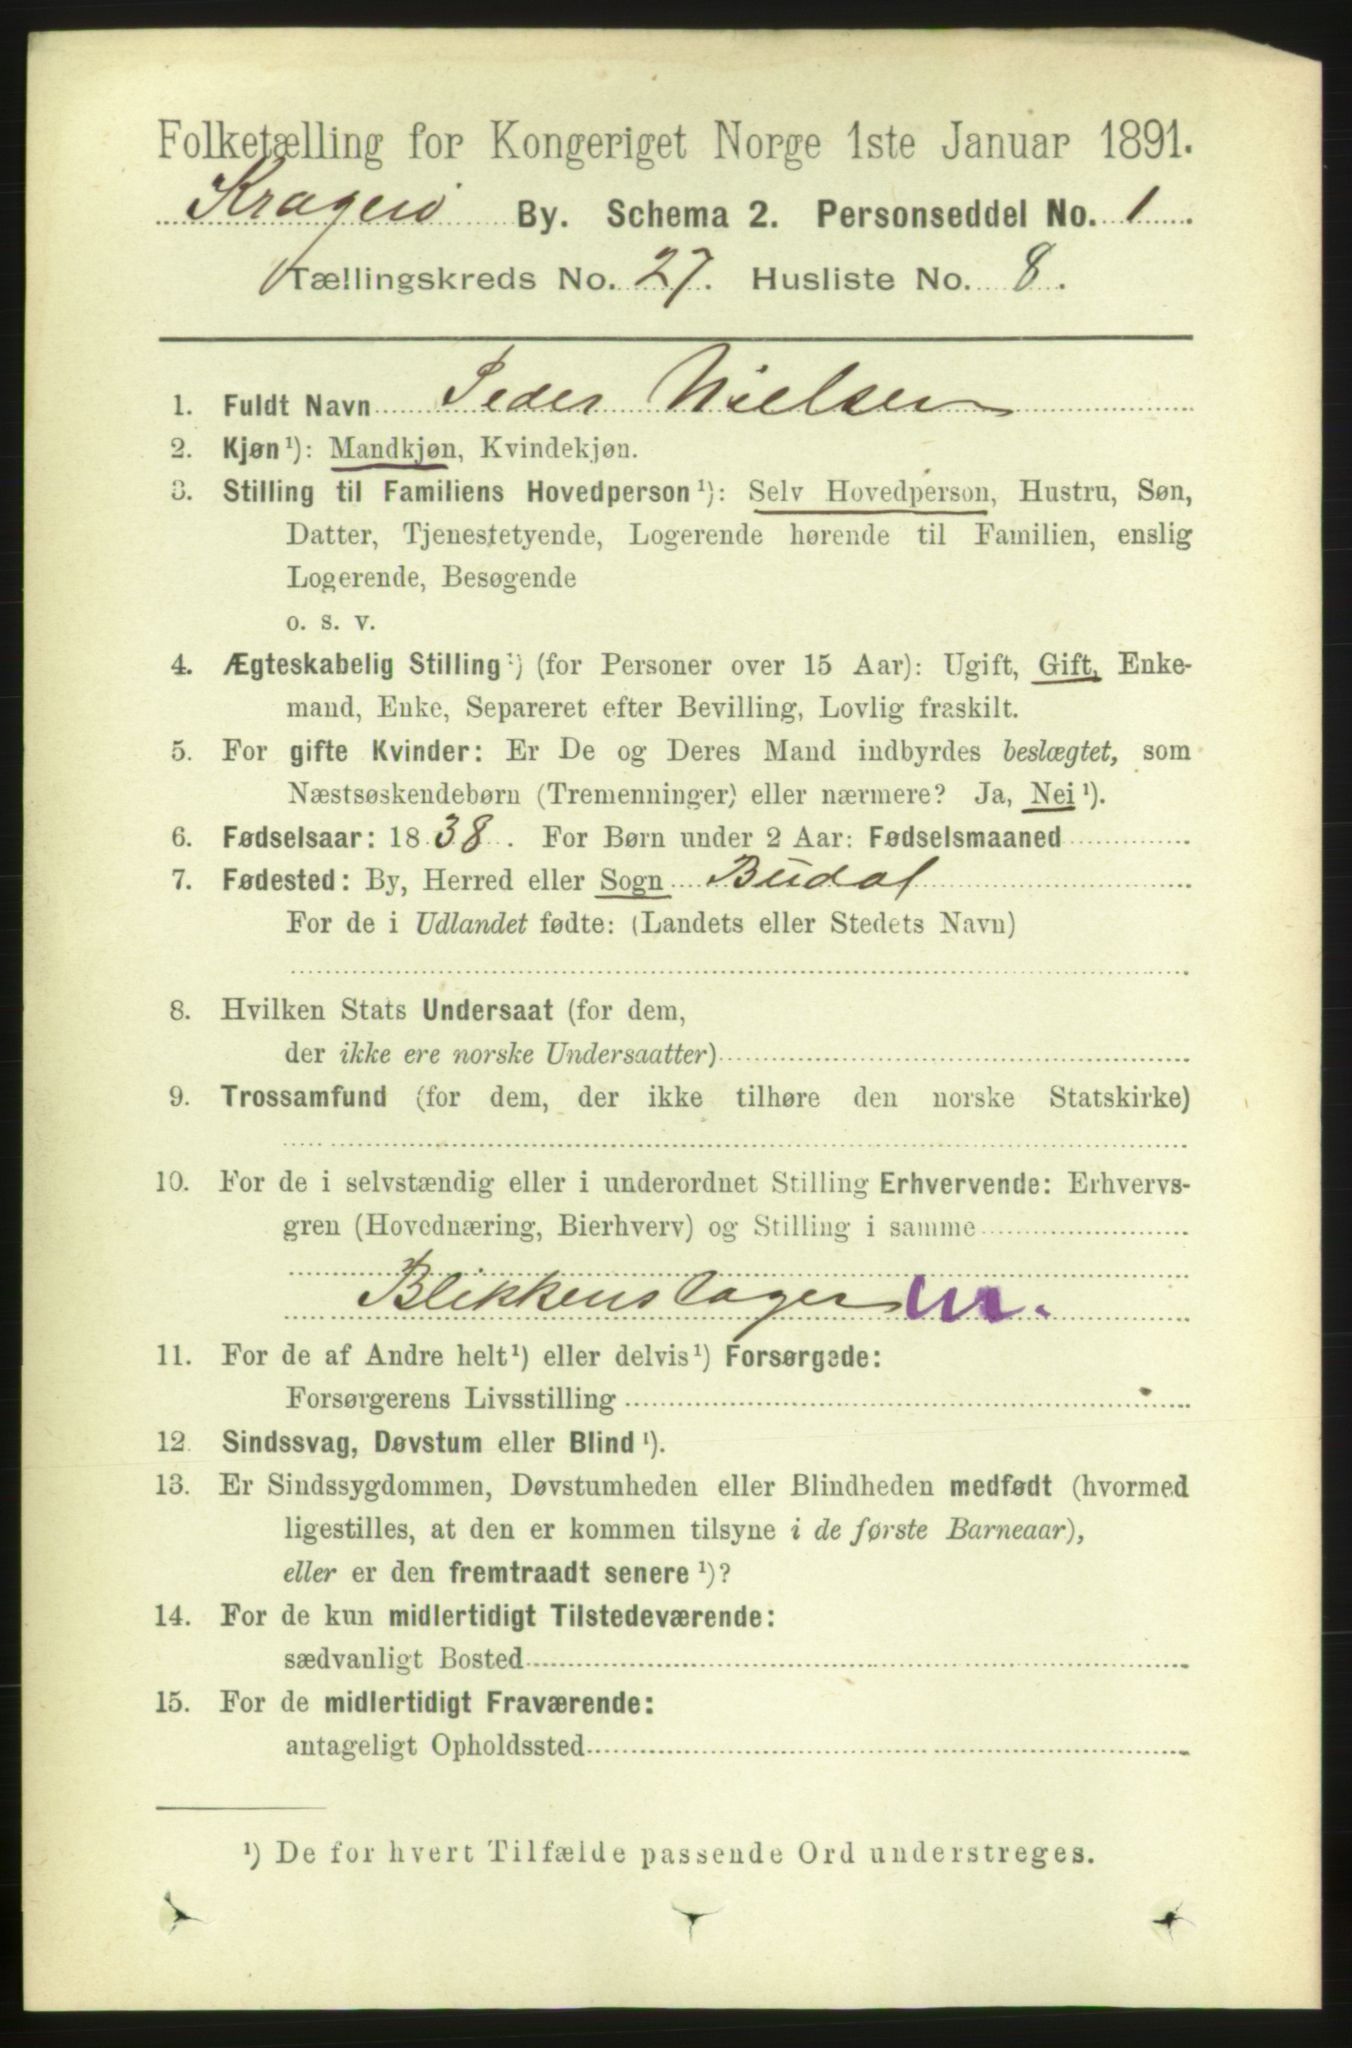 Folketælling for Kongeriget Norge 1ste Januar 1891.
Kragerø By. Schema 2. Personseddel No. 1.
Tællingskreds No. 27. Husliste No. 8.
1. Fuldt Navn Peder Nielsen
2. Kjøn¹): Mandkjøn, Kvindekjøn.
3. Stilling til Familiens Hovedperson¹): Selv Hovedperson, Hustru, Søn,
Datter, Tjenestetyende, Logerende hørende til Familien, enslig
Logerende, Besøgende
o. s. v.
4. Ægteskabelig Stilling¹) (for Personer over 15 Aar): Ugift, Gift, Enke-
mand, Enke, Separeret efter Bevilling, Lovlig fraskilt.
5. For gifte Kvinder: Er De og Deres Mand indbyrdes beslægtet, som
Næstsøskendebørn (Tremenninger) eller nærmere? Ja, Nei¹).
6. Fødselsaar: 1838. For Børn under 2 Aar: Fødselsmaaned
7. Fødested: By, Herred eller Sogn Budal
For de i Udlandet fødte: (Landets eller Stedets Navn)
8. Hvilken Stats Undersaat (for dem,
der ikke ere norske Undersaatter)
9. Trossamfund (for dem, der ikke tilhøre den norske Statskirke)
10. For de i selvstændig eller i underordnet Stilling Erhvervende: Erhvervs-
gren (Hovednæring, Bierhverv) og Stilling i samme
Blikkenslager m.
11. For de af Andre helt¹) eller delvis¹) Forsørgede:
Forsørgerens Livsstilling
12. Sindssvag, Døvstum eller Blind¹).
13. Er Sindssygdommen, Døvstumheden eller Blindheden medfødt (hvormed
ligestilles, at den er kommen tilsyne i de første Barneaar),
eller er den fremtraadt senere¹)?
14. For de kun midlertidigt Tilstedeværende:
sædvanligt Bosted
15. For de midlertidigt Fraværende:
antageligt Opholdssted
¹) De for hvert Tilfælde passende Ord understreges.